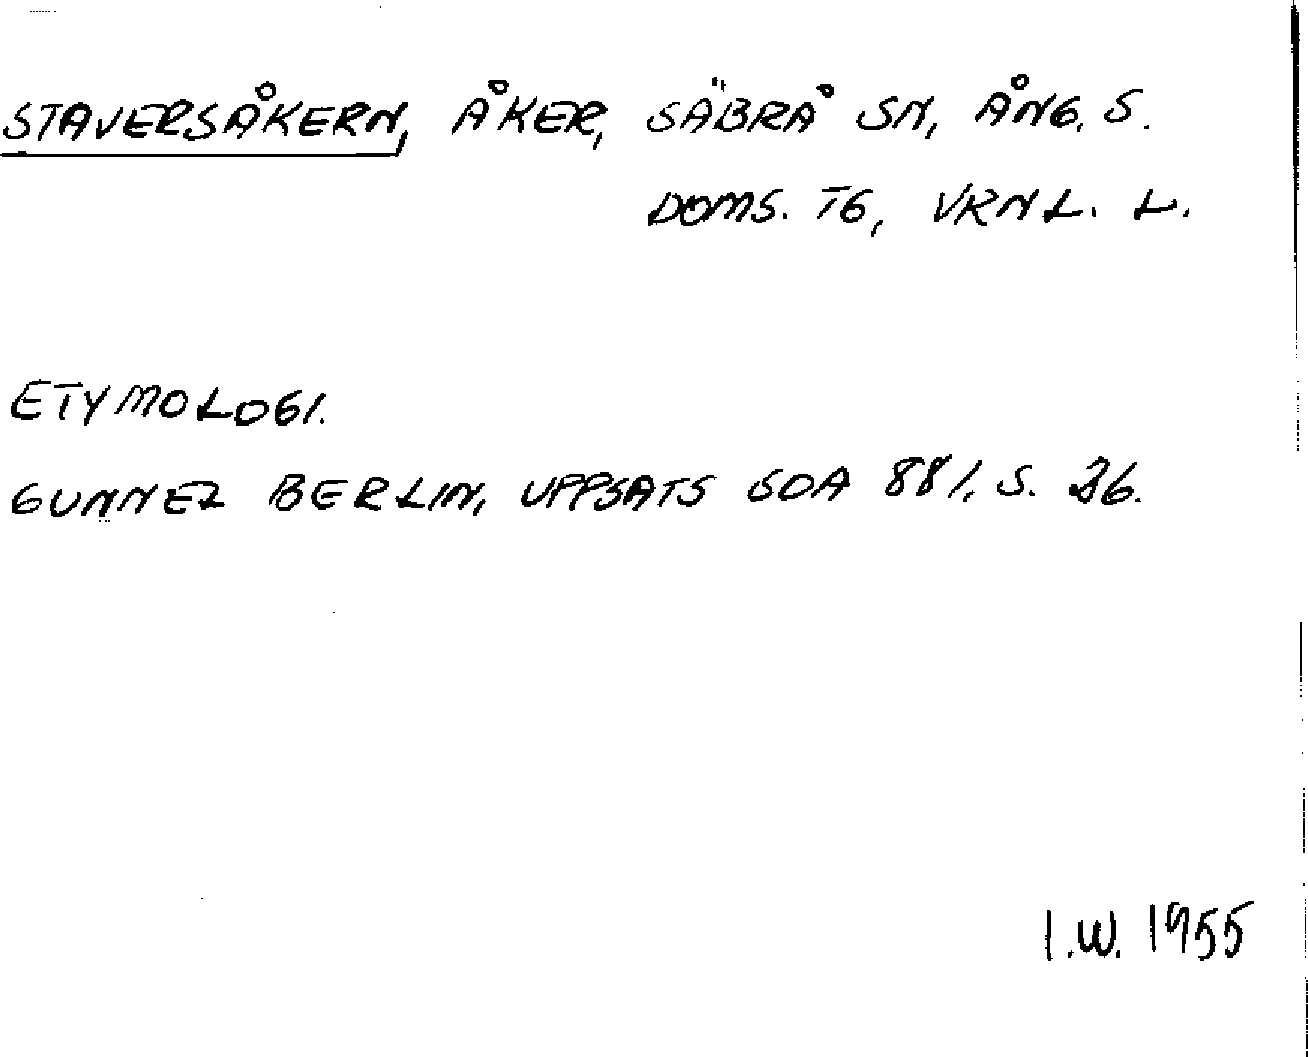 STAVERSÅKERN, ÅKER, SÄBRÅ SN, ÅNG. S.
DOMS. TG, VRNL. L.
ETYMOLOGI.
GUNNEL BERLIN, UPPSATS SOA 881, S. 26.
I.W. 1955